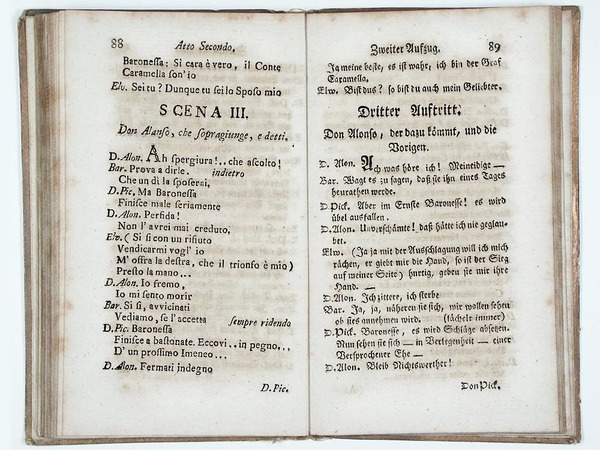 88 Atto Secondo.
Baronessa: Si cara è vero, il Conte
Caramella son' io
Elv. Sei tu? Dunque tu sei lo Sposo mio
SCENA III.
Don Alonso, che sopragiunge, e detti.
D. Alon. Ah spergiura!..che ascolto!
Bar. Prova a dirle. indietro
Che un dì la sposerai,
D. Pic. Ma Baronessa
Finisce male seriamente
D. Alon. Perfida!
Non l' avrei mai creduto,
Elv. ( Si si con un rifiuto
Vendicarmi vogl' io
M' offra la destra, che il trionfo è mio)
Presto la mano...
D. Alon. Io fremo,
Io mi sento morir
Bar. Si si, avvicinati
Vediamo, se l'accetta sempre ridendo
D. Pic. Baronessa
Finisce a bastonate. Eccovi..in pegno...
D' un prossimo Imeneo...
D. Alon. Fermati indegno
D. Pic.
Zweiter Aufzug. 89
Ja meine beste, es ist wahr, ich bin der Graf
Caramella.
Elw. Bist dus? so bist du auch mein Geliebter.
Dritter Auftritt.
Don Alonso, der dazu kömmt, und die
Vorigen.
D. Alon. Ach was höre ich! Meineidige —
Bar. Wagt es zu sagen, daß sie ihn eines Tages
heurathen werde.
D. Pick. Aber im Ernste Baronesse! es wird
übel ausfallen.
D. Alon. Unverschämte! daß hätte ich nie geglau-
bet.
Elw. (Ja ja mit der Ausschlagung will ich mich
rächen, er giebt mir die Hand, so ist der Sieg
auf meiner Seite) hurtig, geben sie mir ihre
Hand. —
D. Alon. Ich zittere, ich sterbe
Bar. Ja, ja, näheren sie sich, wir wollen sehen
ob sies annehmen wird. (lächelt immer)
D. Pick. Baronesse, es wird Schläge absetzen.
Nun sehen sie sich — in Verlegenheit — einer
Versprochener Ehe —
D. Alon. Bleib Nichtswerther!
Don Pick.